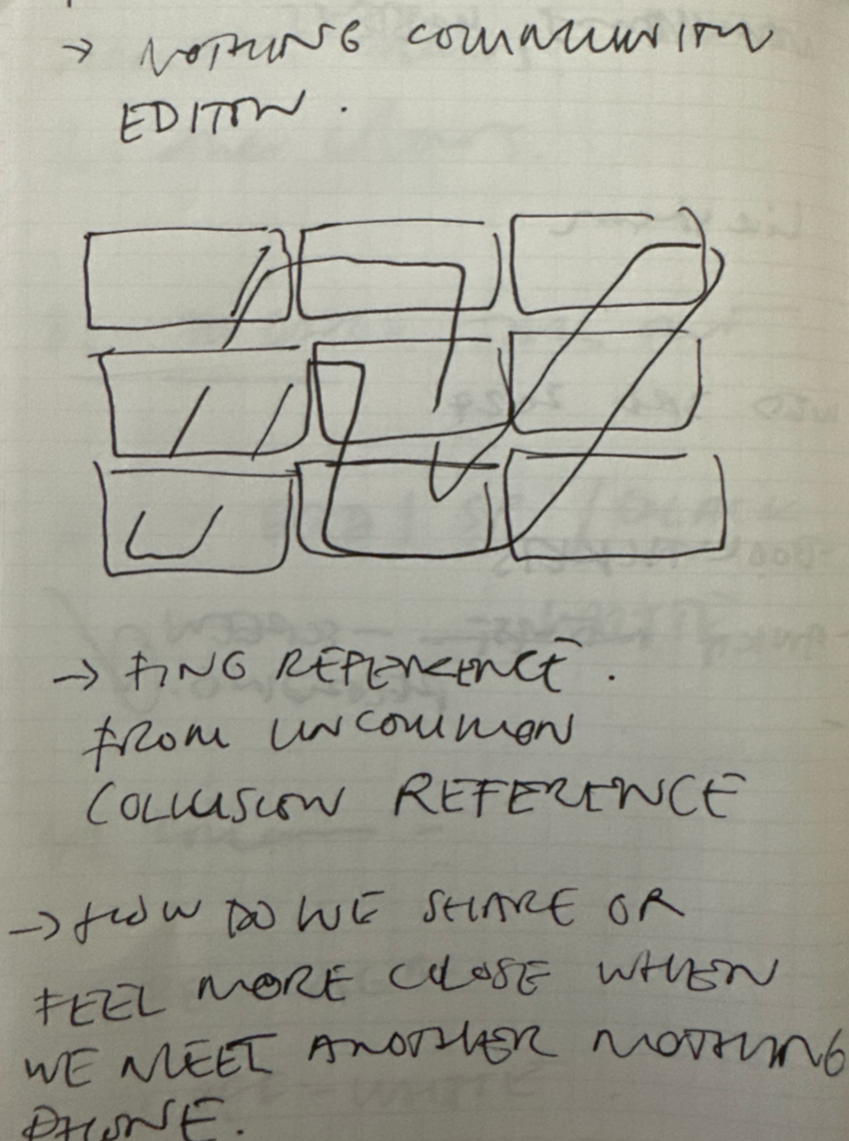 → NOTHING COMMUNITY
EDITION.
→ FIND REFERENCE.
FROM UNCOMMON
COLLUSION REFERENCE
→ HOW DO WE SHARE OR
FEEL MORE CLOSE WHEN
WE MEET ANOTHER NOTHING
PHONE.